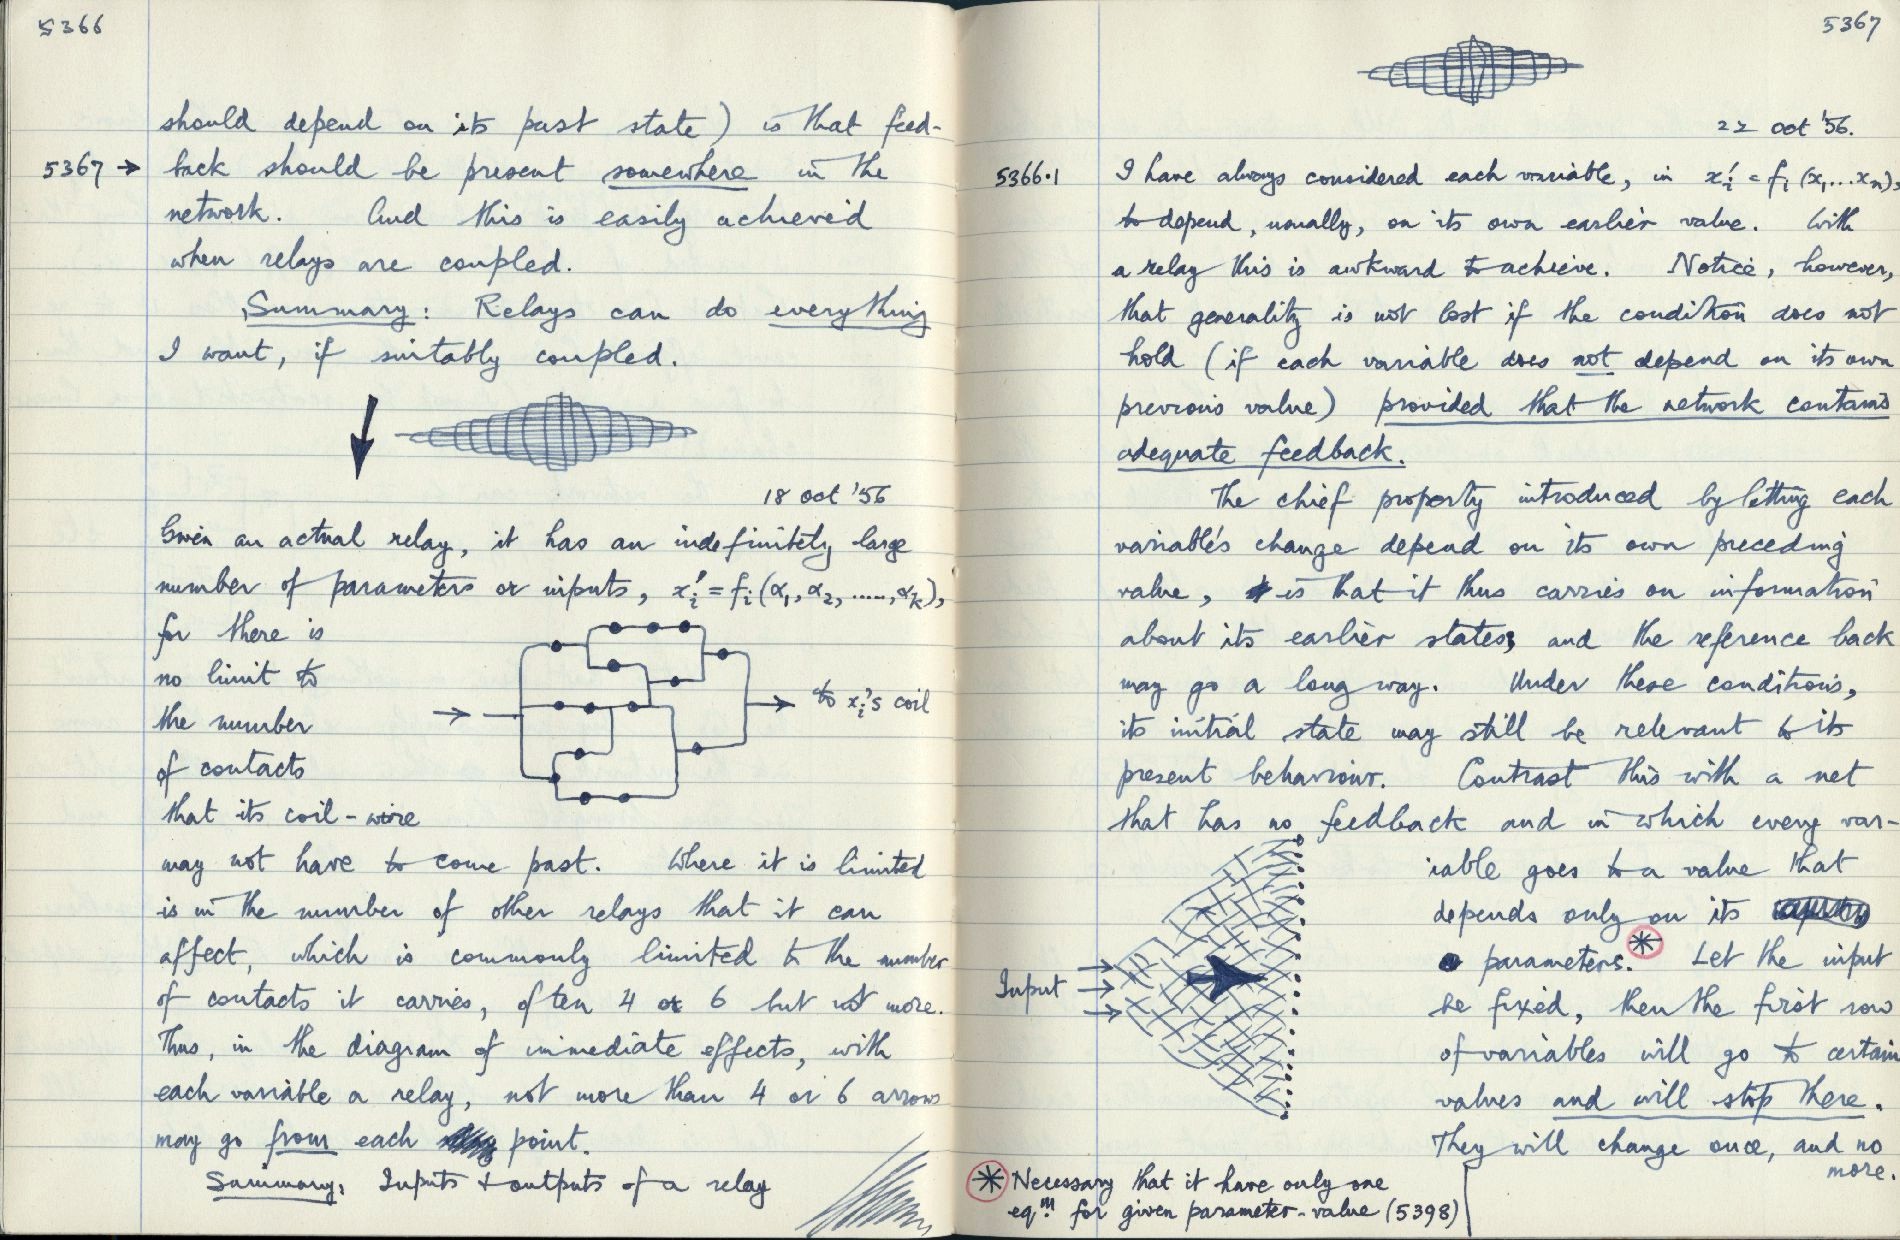 5366
should depend on its past state) is that feed-
5367 → back should be present somewhere in the
network. And this is easily achieved
when relays are coupled.
Summary: Relays can do everything
I want, if suitably coupled.
18 Oct '56
Given an actual relay, it has an indefinitely large
number of parameters or inputs, x'ᵢ = fᵢ(α₁, α₂, ....., αₖ),
for there is
no limit to
the number
of contacts
that its coil-wire
→ to xᵢ's coil
may not have to come past. Where it is limited
is in the number of other relays that it can
affect, which is commonly limited to the number
of contacts it carries, often 4 or 6 but not more.
Thus, in the diagram of immediate effects, with
each variable a relay, not more than 4 or 6 arrows
may go from each point.
Summary: Inputs & outputs of a relay
5367
22 Oct '56.
5366.1 I have always considered each variable, in x'ᵢ = fᵢ(x₁...xₙ),
to depend, usually, on its own earlier value. With
a relay this is awkward to achieve. Notice, however,
that generality is not lost if the condition does not
hold (if each variable does not depend on its own
previous value) provided that the network contains
adequate feedback.
The chief property introduced by letting each
variable's change depend on its own preceding
value, is that it thus carries on information
about its earlier states, and the reference back
may go a long way. Under these conditions,
its initial state may still be relevant to its
present behaviour. Contrast this with a net
that has no feedback and in which every var-
iable goes to a value that
depends only on its
parameters.* Let the input
be fixed, then the first row
of variables will go to certain
values and will stop there.
They will change once, and no
more.
Input
* Necessary that it have only one
eqm. for given parameter-value (5398)